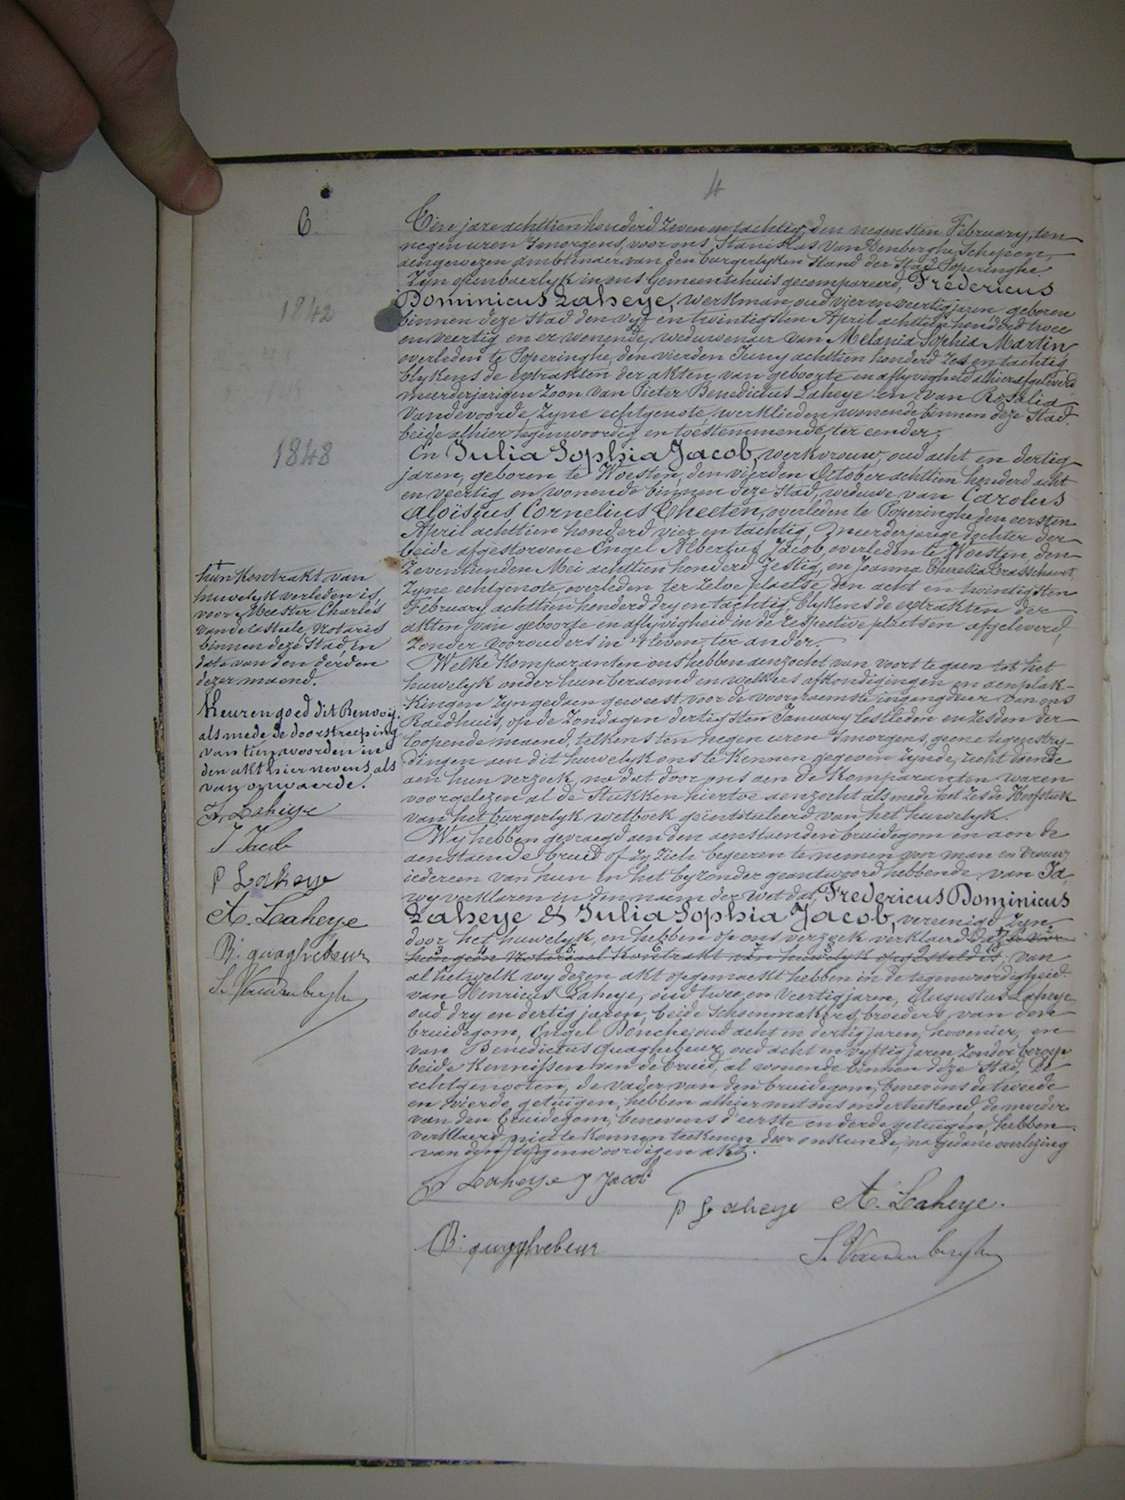 4
6
Ten jare achttien honderd zeven en tachtig den negensten February, ten
negen uren 's morgens, voor ons, Stanislas Van Denberghe, Schepen,
aengewezen ambtenaer van den burgerlyken Stand der Stad Poperinghe
Zyn openbaerlyk in ons Gemeentehuis gecompareerd, Fredericus
Dominicus Laheye, werkman, oud vier en veertig jaren, geboren
binnen deze stad den vyf en twintigsten April achttien honderd twee
en veertig en er wonende, weduwenaer van Melania Sophia Martin
overleden te Poperinghe, den vierden Juny achttien honderd zes en tachtig
blykens de extrakten der akten van geboorte en aflyvigheid alhier afgeleverd
meerderjarigen zoon van Pieter Benedictus Laheye en van Rosalia
Vandevoorde, zyne echtgenote, werklieden, wonende binnen deze Stad,
beide alhier tegenwoordig en toestemmende, ter eender;
En Julia Sophia Jacob, werkvrouw, oud acht en dertig
jaren, geboren te Woesten, den vierden October achttien honderd acht
en veertig en wonende binnen deze Stad, weduwe van Carolus
Aloïsius Cornelius Cheeten, overleden te Poperinghe, den eersten
April achttien honderd vier en tachtig, meerderjarige dochter der
beide afgestorvene Engel Albertus Jacob, overleden te Woesten, den
zeventienden Mei achttien honderd zestig, en Joanna Aurelia Brasschaert,
zyne echtgenote, overleden ter zelve plaetse den acht en twintigsten
February achttien honderd dry en tachtig, blykens de extrakten der
akten van geboorte en aflyvigheid in de respective plaetsen afgeleverd,
zonder voorouders in 't leven, ter ander.
Welke komparanten ons hebben aenzocht van voort te gaen tot het
huwelyk onder hun beraemd en welkers afkondigingen en aenplak-
kingen zyn gedaen geweest voor de voornaemste ingangdeur van ons
Raedhuis, op de Zondagen dertigsten January lestleden en zesden der
loopende maend, telkens ten negen uren 's morgens, geene tegenstry-
dingen aen dit huwelyk ons te kennen gegeven zynde, recht doende
aen hun verzoek, na dat door ons aen de komparanten waren
voorgelezen al de stukken hiertoe aenzocht als mede het zesde Hoofdstuk
van het burgerlyk wetboek geintituleerd van het huwelyk.
Wy hebben gevraegd aen den aenstaenden bruidegom en aen de
aenstaende bruid of zy zich begeeren te nemen voor man en vrouw
iedereen van hun in het byzonder geantwoord hebbende van Ja,
wy verklaren in den naem der wet dat, Fredericus Dominicus
Laheye & Julia Sophia Jacob, vereenigd zyn
door het huwelyk, en hebben op ons verzoek verklaerd dat er voor
hun geen Notariael Kontrakt van huwelyk opgesteld is, van
al hetwelk wy dezen akt opgemaekt hebben in de tegenwoordigheid
van Henricus Laheye, oud twee en veertig jaren, Augustus Laheye
oud dry en dertig jaren, beide Schoenmakers, broeders van den
bruidegom, Engel Bonche, oud acht en dertig jaren, hovenier, en
van Benedictus Quaghebeur, oud acht en vyftig jaren, zonder beroep
beide kennissen van de bruid, al wonende binnen deze Stad, De
echtgenooten, de vader van den bruidegom, benevens de tweede
en vierde getuigen, hebben alhier met ons onderteekend, de moeder
van den bruidegom, benevens d'eerste en derde getuigen, hebben
verklaerd niet te konnen teekenen door onkunde, na gedane voorlezing
van den tegenwoordigen akt.
F. Laheye J Jacob
P Laheye A. Laheye.
B. quaghebeur
S. Vandenberghe
1842
1848
+
hun kontrakt van
huwelyk verleden is
voor Meester Charles
Vandecasteele, Notaris
binnen deze Stad, in
date van den derden
dezer maend.
Keuren goed dit Renvooi
als mede de doorstreeping
van tien woorden in
den akt hier nevens, als
van onwaerde.
F. Laheye
J Jacob
P Laheye
A. Laheye
B. quaghebeur
S. Vandenberghe